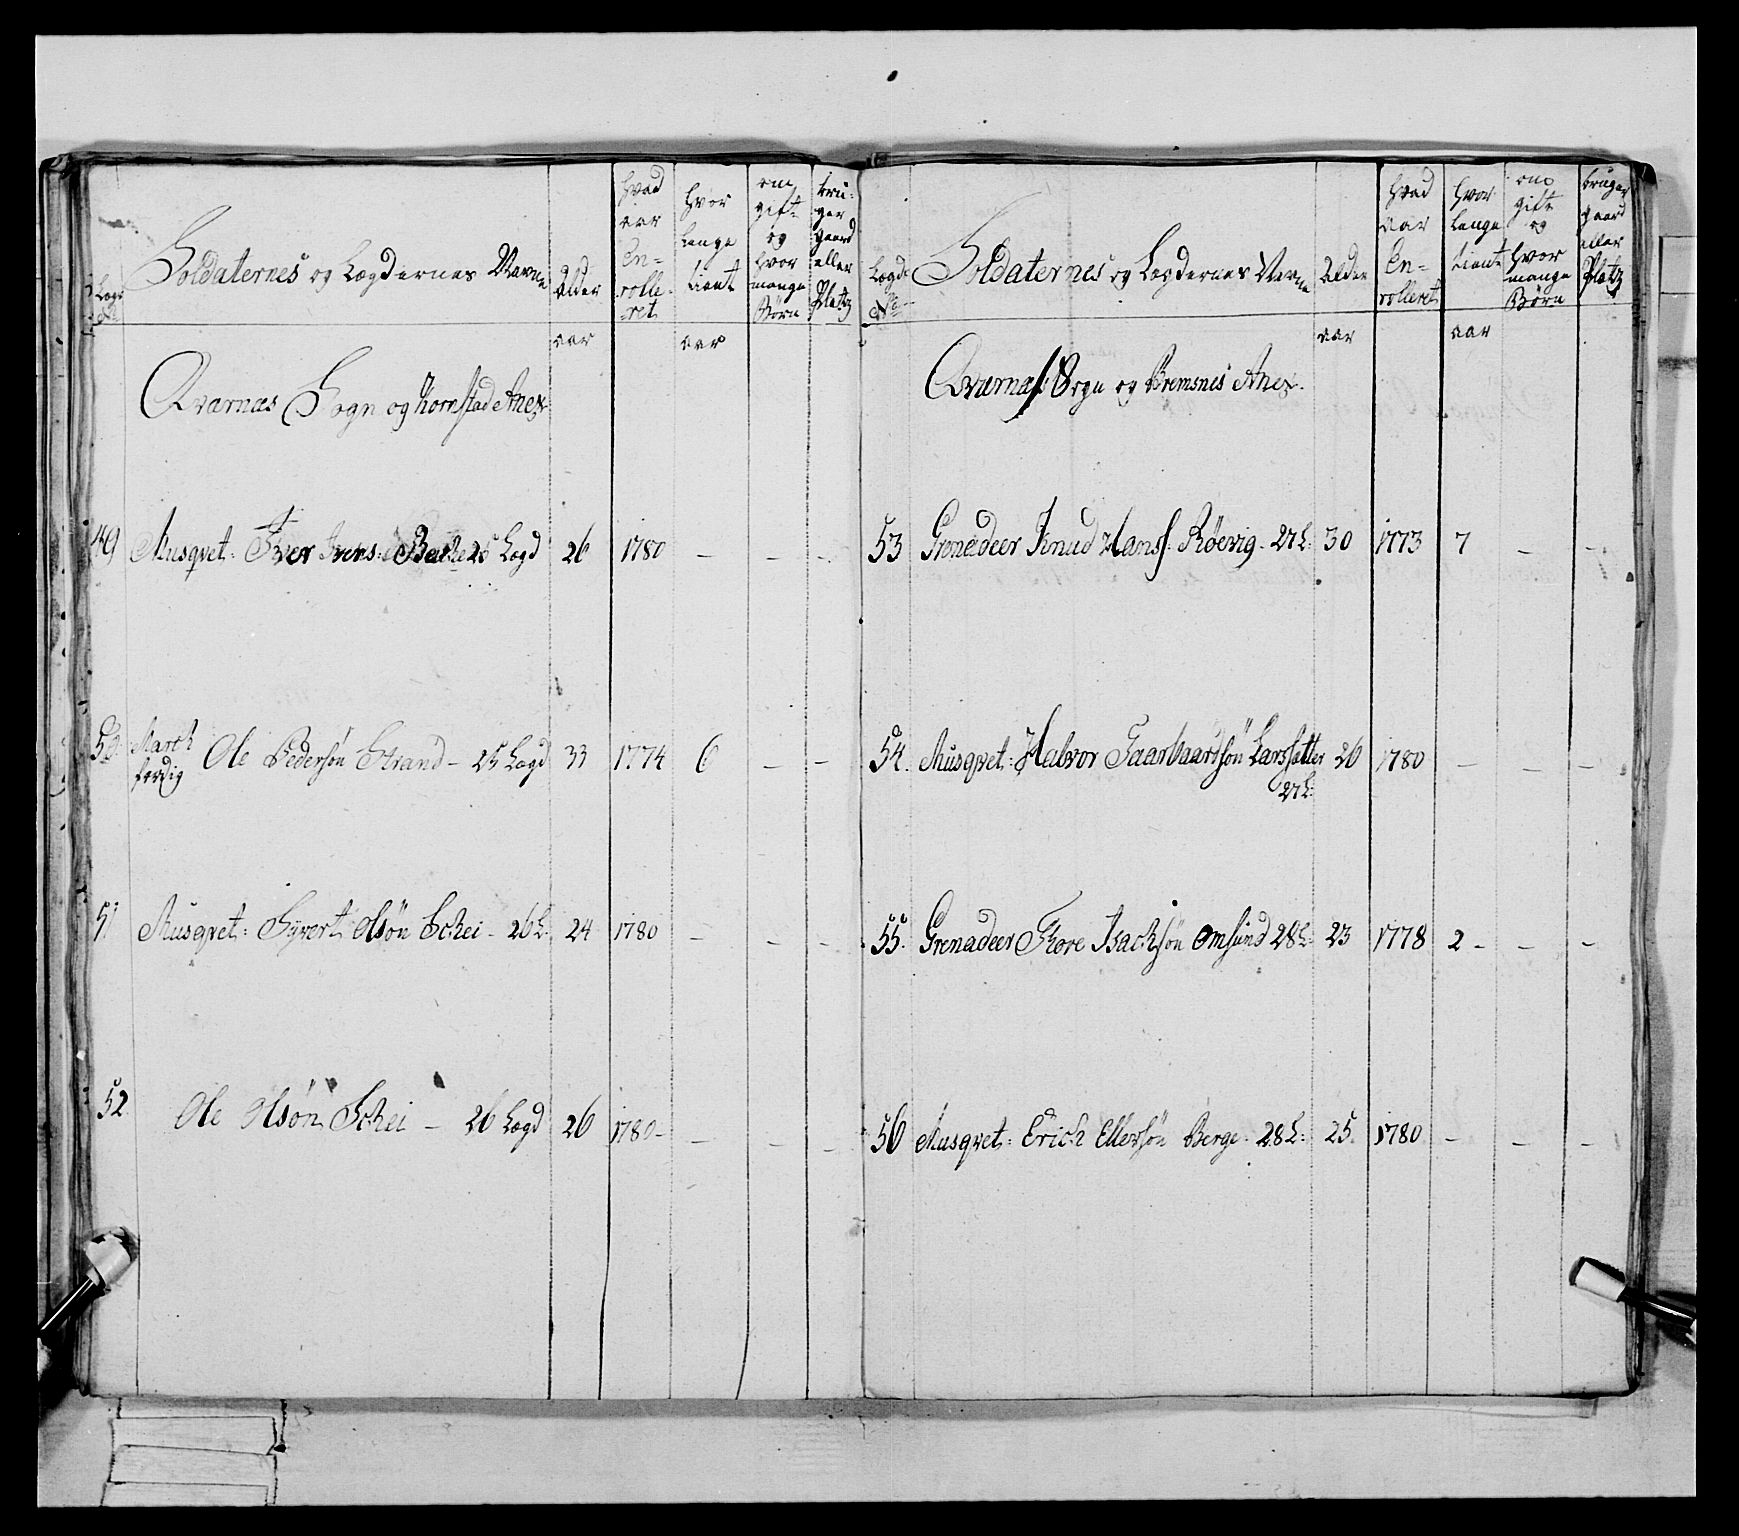 Soldaternes og Lægdernes Navne
Alder
hvad aar En-rolle-ret
hvor lenge tient
om gift og hvor mange Børn
bru-ger gaard eller Platz
aar aar
Qværnæs Sogn og Kornstad Anex
49 Musqvet: Iver Ivers: 25 Lægd 26 1780 – – –
50 March færdig Ole Pedersøn Strand – 25 Lægd 33 1774 6 – –
51 Musqvet: Syvert Olsøn Schei – 26 L: 24 1780 – – –
52 Ole Olsøn Schei – 26 Lægd 26 1780 – – – –
Lægds No
Soldaternes og Legdernes Navne
Alder
hvad aar En-rolleret
hvor lenge tient
om gift og hvor mange Børn
bruger gaard eller Platz
aar aar
Qværnæs Sogn og Bremsnes Anex.
53 Grenadeer Knud Hanss: Røevig – 27 L: 30 1773 7 – –
54. Musqvet: Halvor Taarbaardsøn Larssætter 26 1780 – – –
27 L:
55. Grenadeer Thore Isachsøn Omsund 28 L: 23 1778 2 – – –
56 Musqvet: Erich Ellersøn Berge – 28 L: 25 1780 – – –